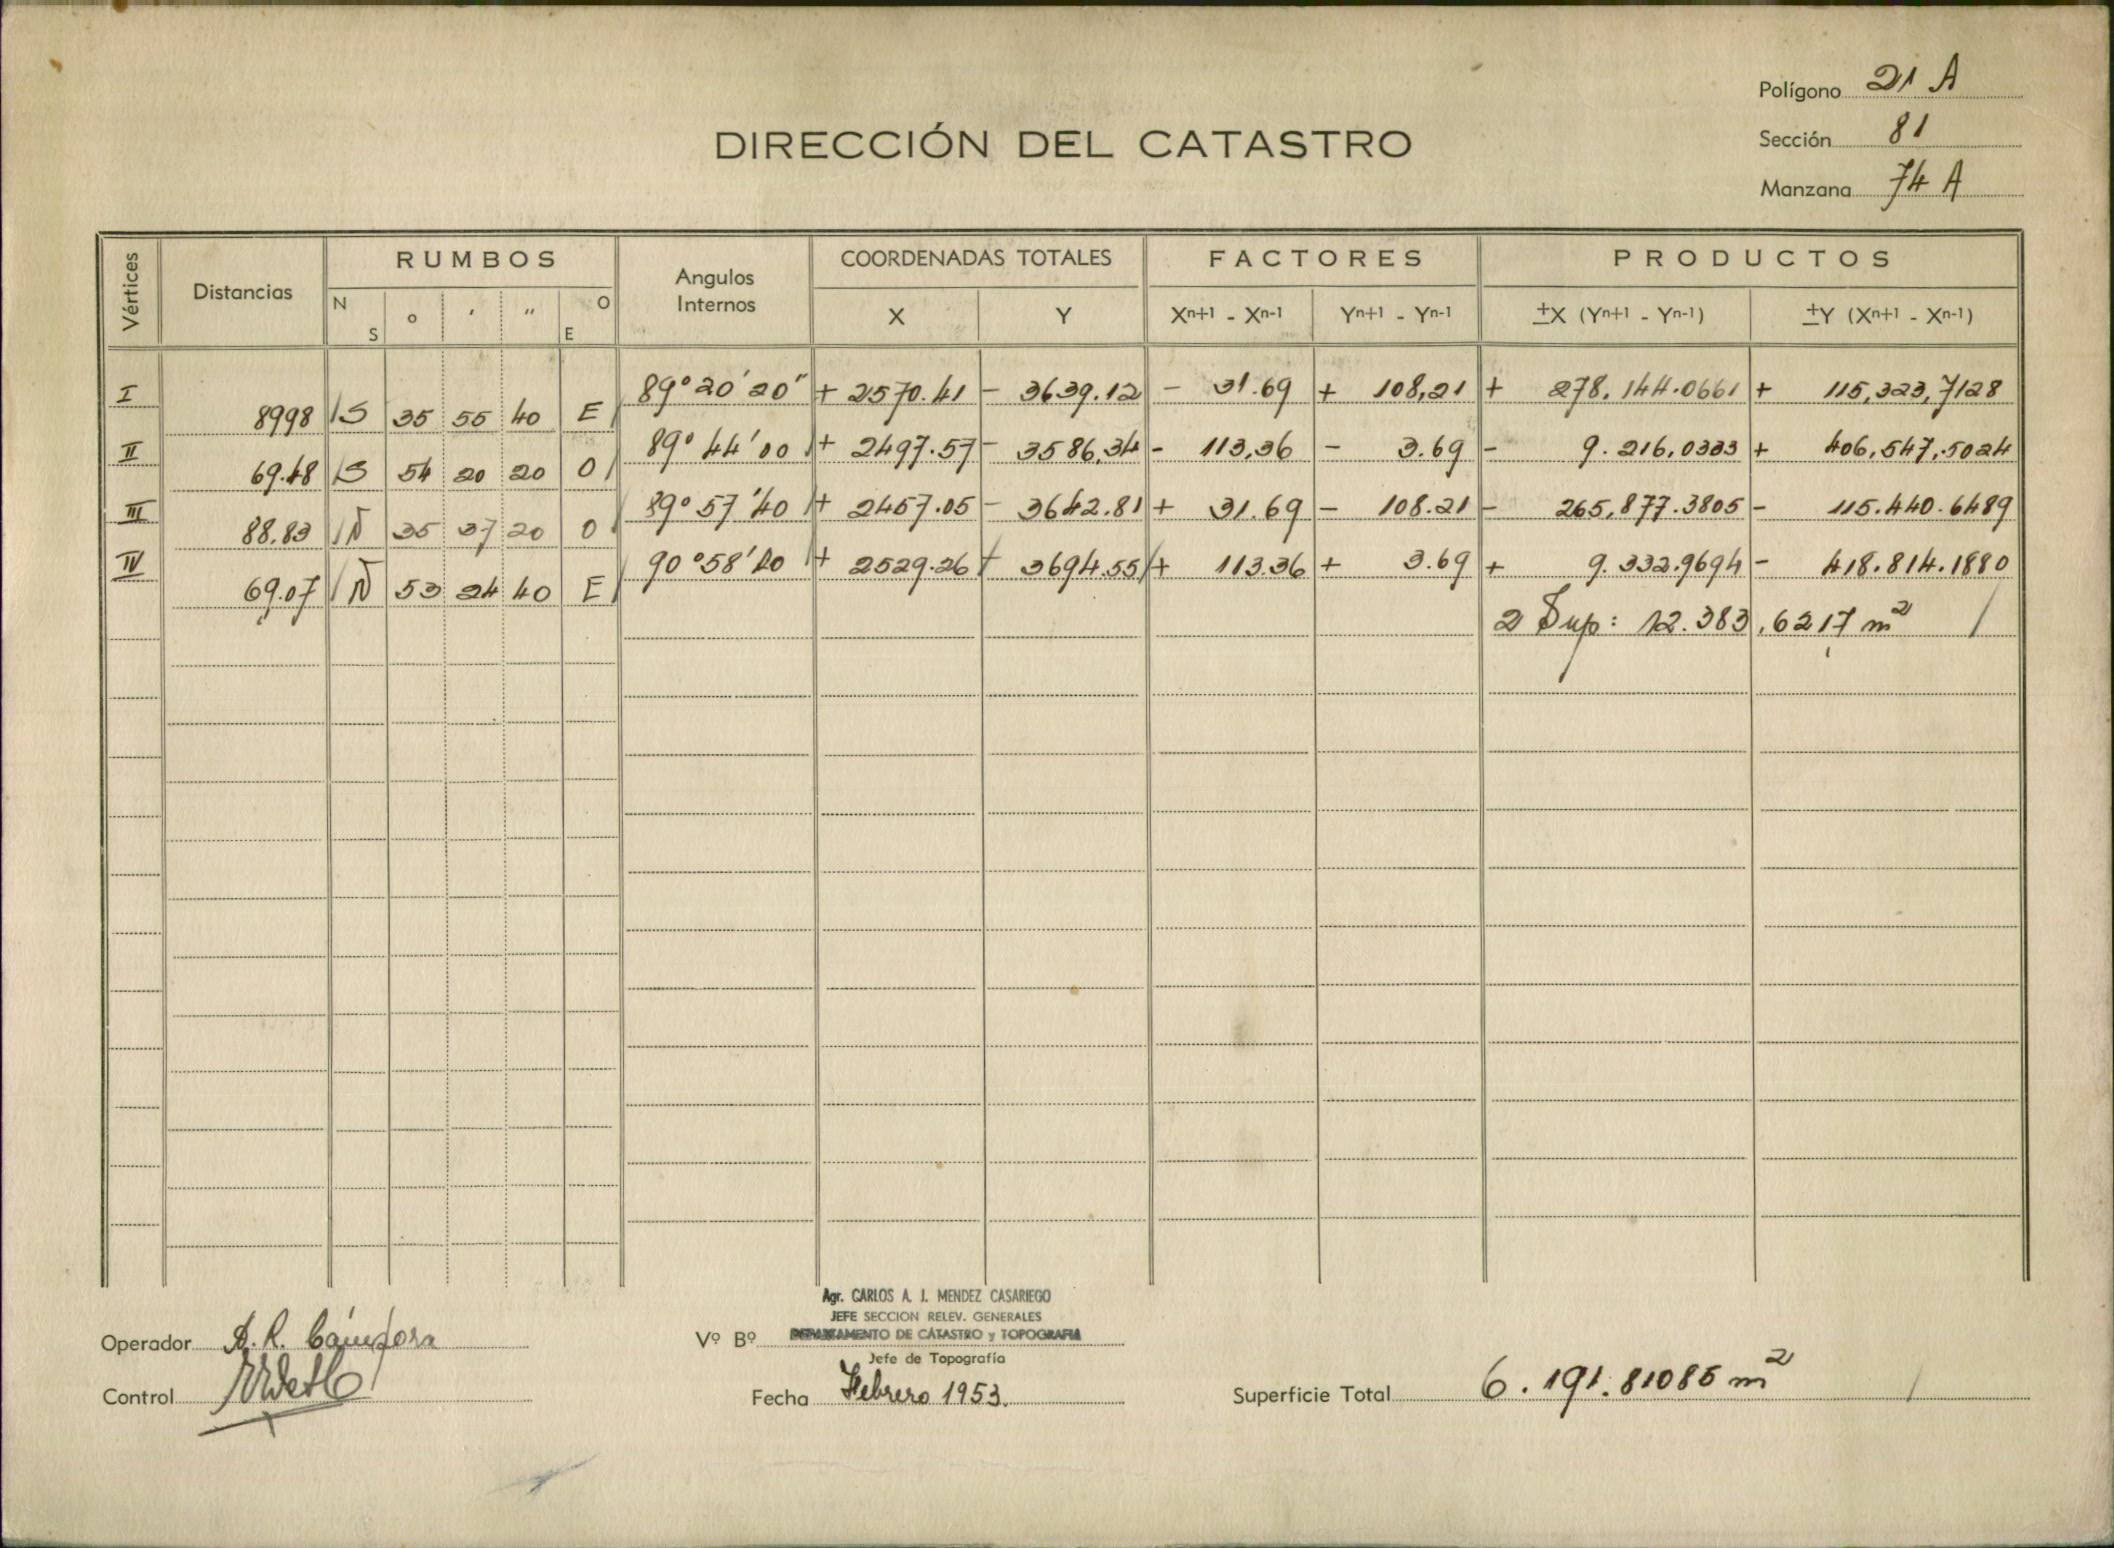 Polígono 21 A
DIRECCIÓN DEL CATASTRO
Sección 81
Manzana 74 A
Vértices Distancias RUMBOS Angulos Internos COORDENADAS TOTALES FACTORES PRODUCTOS
N S o ' " O E X Y Xn+1 - Xn-1 Yn+1 - Yn-1 ±X (Yn+1 - Yn-1) ±Y (Xn+1 - Xn-1)
I 89°20'20" + 2570.41 - 3639.12 - 31.69 + 108,21 + 278.144.0661 + 115,323,7128
8998 S 35 55 40 E
II 89°44'00 + 2497.57 - 3586,34 - 113,36 - 3.69 - 9.216,0333 + 406,547,5024
69.48 S 54 20 20 O
III 89°57'40 + 2457.05 - 3642.81 + 31.69 - 108.21 - 265,877.3805 - 115.440.6489
88.83 N 35 37 20 O
IV 90°58'00 + 2529.26 - 3694.55 + 113.36 + 3.69 + 9.332.9694 - 418.814.1880
69.07 N 53 24 40 E
2 Sup: 12.383,6217 m²
Agr. CARLOS A. J. MENDEZ CASARIEGO
JEFE SECCION RELEV. GENERALES
Operador A. R. Cámpora Vº Bº DEPARTAMENTO DE CATASTRO y TOPOGRAFIA
Jefe de Topografía
Control Fecha Febrero 1953. Superficie Total 6.191.81085 m²